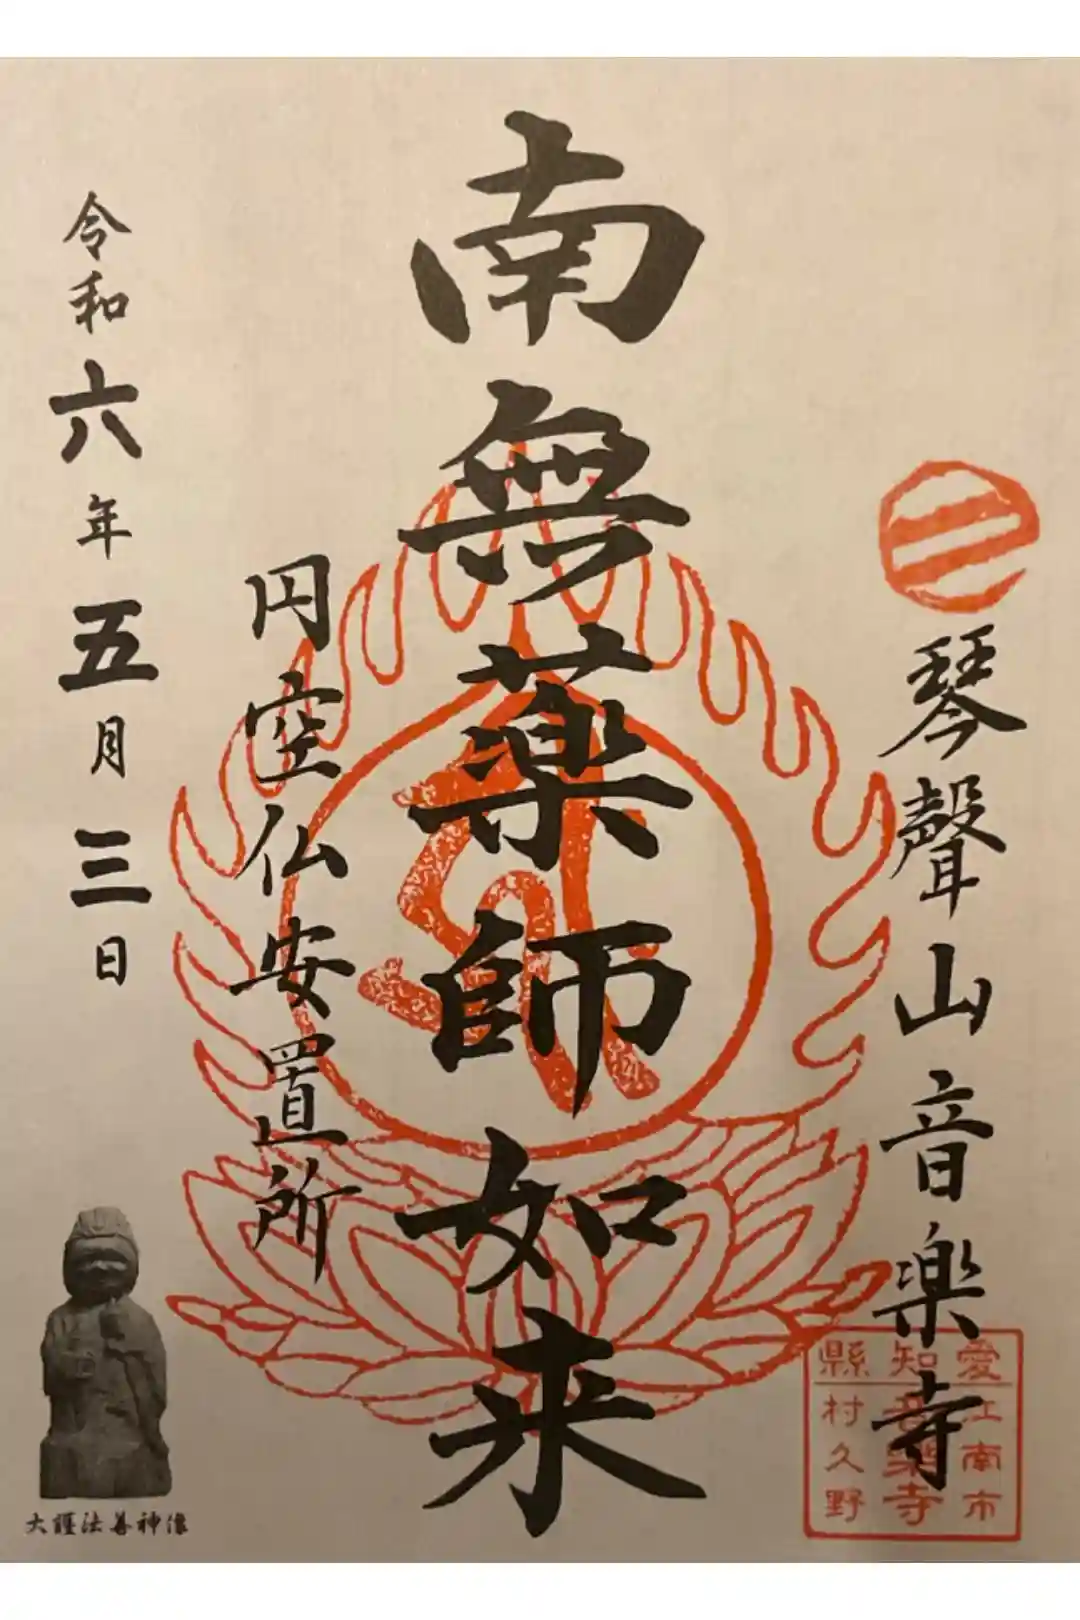 琴聲山音楽寺
愛知縣
江南市
音楽寺
村久野
南無薬師如来
円空仏安置所
令和六年五月三日
大護法善神像